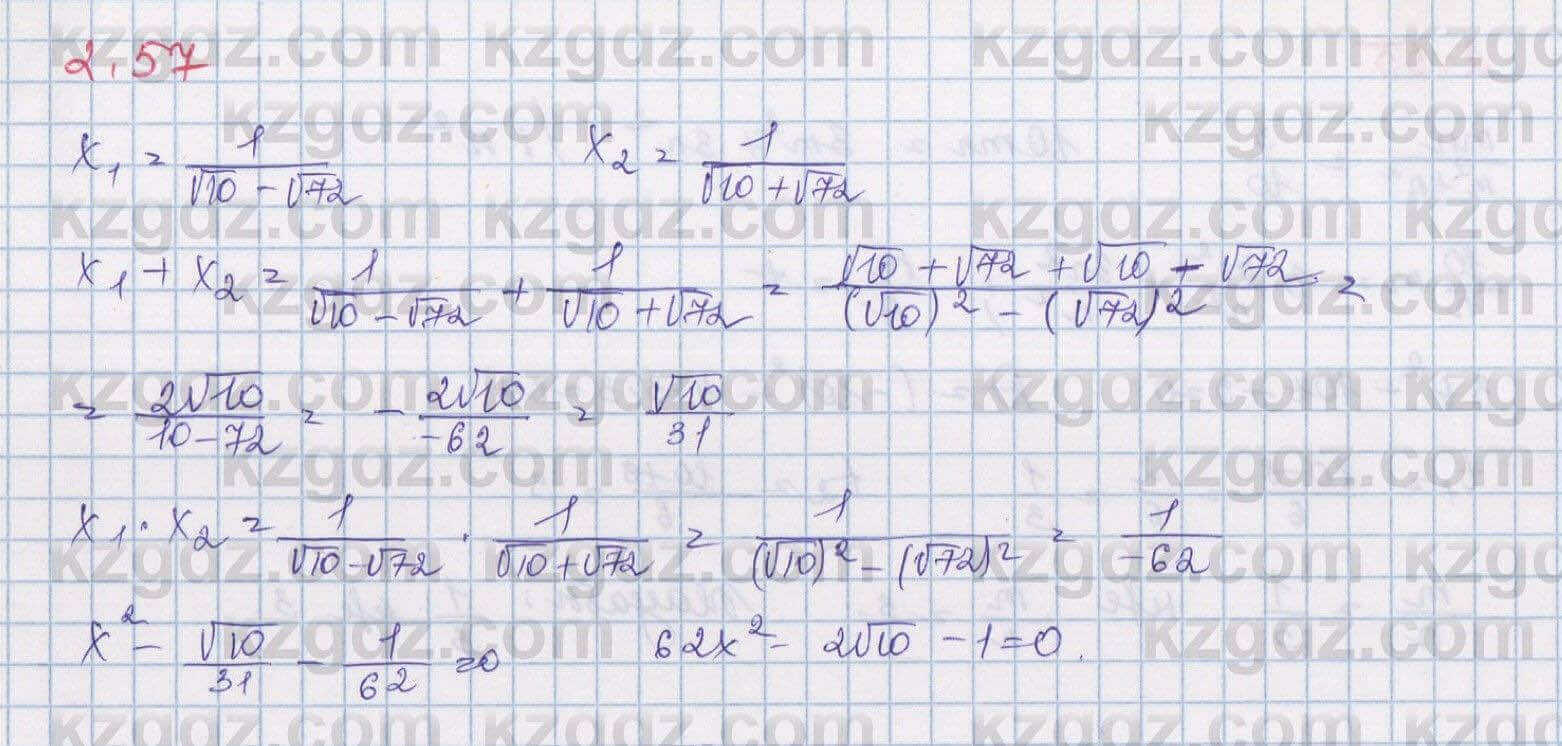 2.57
x₁ = 1/(√10 − √72)    x₂ = 1/(√10 + √72)
x₁ + x₂ = 1/(√10 − √72) + 1/(√10 + √72) = (√10 + √72 + √10 − √72)/((√10)² − (√72)²) =
= 2√10/(10 − 72) = − 2√10/(−62) = √10/31
x₁ · x₂ = 1/(√10 − √72) · 1/(√10 + √72) = 1/((√10)² − (√72)²) = 1/(−62)
x² − √10/31 − 1/62 = 0    62x² − 2√10 − 1 = 0.
kzgdz.com